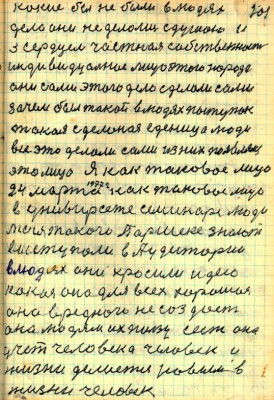 какие бы не были в людях 101
дела они не делали с душою и
з сердцем частная собственность
индивидуальное лицо этого народа
они сами этого дело сделали сами
зачем был такой в людях поступок
такая сделаная еденица люди
все это делали сами из них появляет
это лицо Я как таковое лицо
24 марта как таковое лицо
в университете семинаре люди
меня такого Паршека знают
выступали в Аудитории
в людях они просили идею
какая она для всех хорошая
она вредного не создает
она людям их пому есть она
учит человека человек и
жизни делается новым в
жизни человек